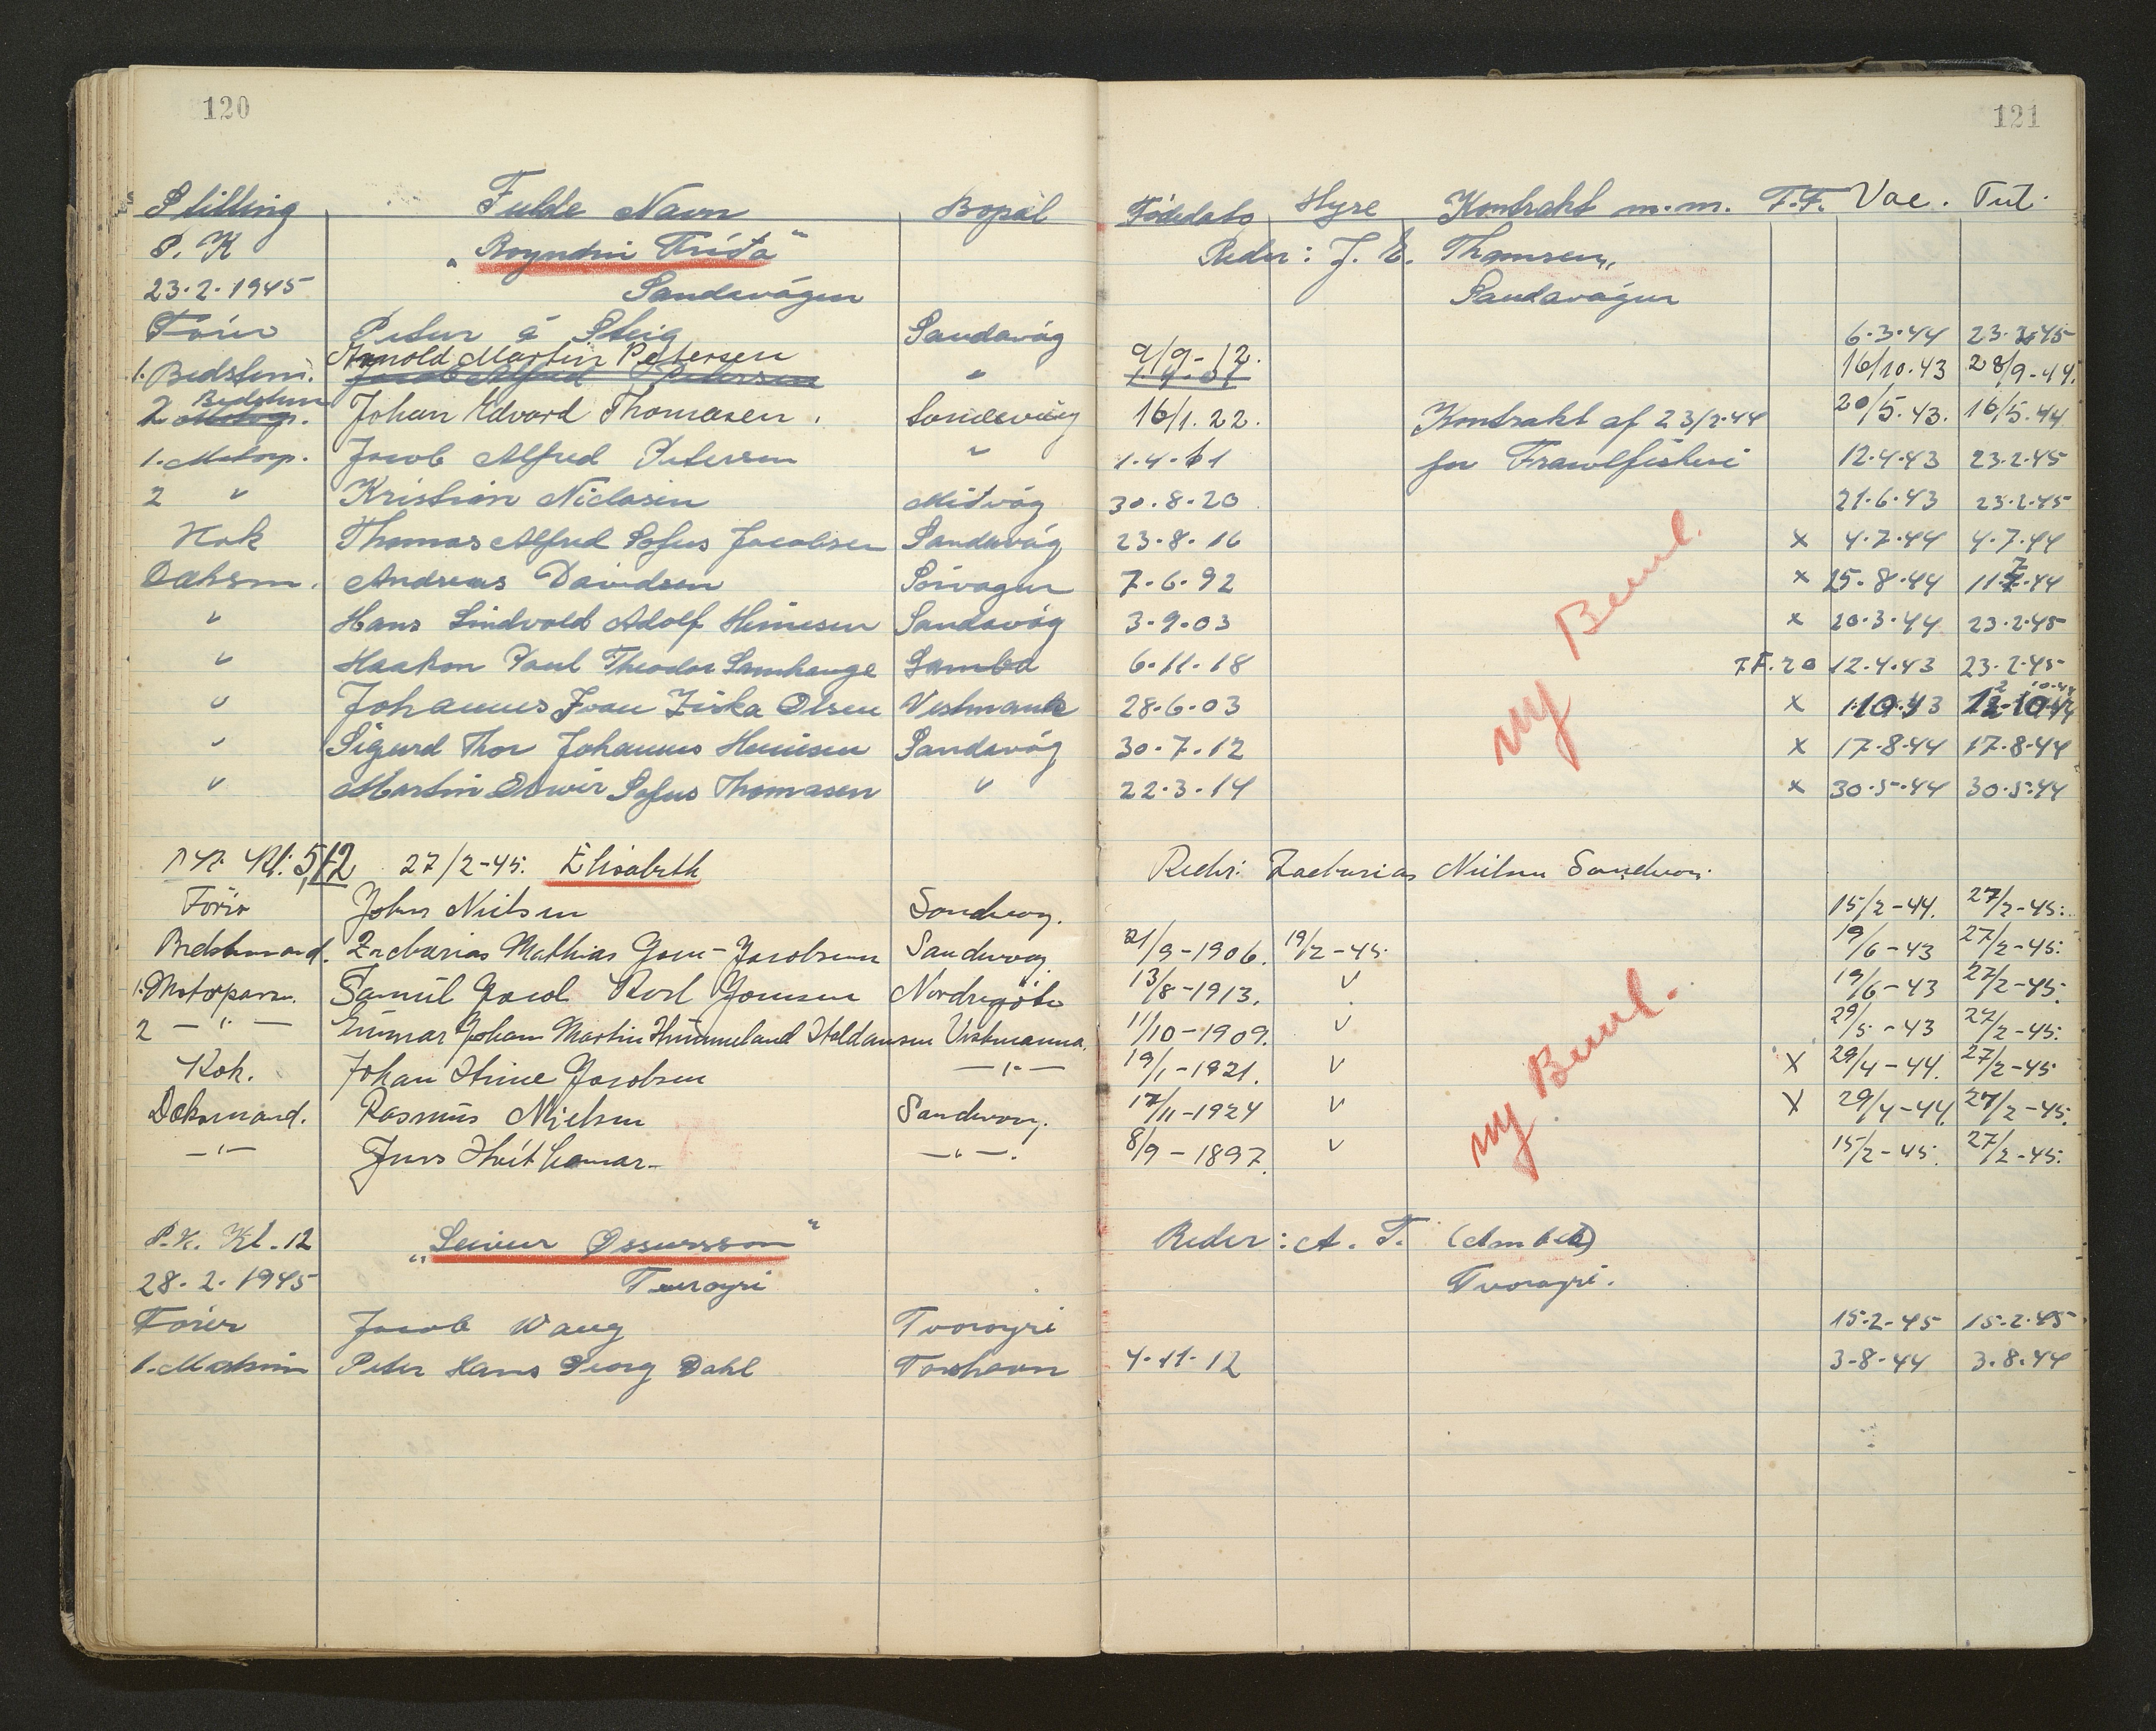 120
121
Stilling Fulde Navn Bopæl Fødedato Hyre Kontrakt m.m. T.F. Vac. Tub.
P. K „Royndin Fríða“ Reder: J. E. Thomsen,
23.2.1945 Sandavágur Sandavágur
Fører Petur á Steig Sandavág 6.3.44 23.2.45
Arnold Martin Petersen
1. Bedstem. Jacob Alfred Petersen " 9/9-12. 16/10.43 28/9-44.
Bedstem
2 Motorp. Johan Edvard Thomasen. Sandevåg 16/1.22. Kontrakt af 23/2.44 20/5.43. 16/5.44
1. Motorp. Jacob Alfred Petersen " 1.4.01 for Trawlfiskeri 12.4.43 23.2.45
2 " Kristian Niclasen Midvág 30.8.20 21.6.43 23.2.45
Kok Thomas Alfred Sofus Jacobsen Sandavág 23.8.16 x 4.7.44 4.7.44
Dæksm. Andreas Davidsen Sørvagur 7.6.92 x 25.8.44 11.7.44
" Hans Lindvold Adolf Heinesen Sandavág 3.9.03 x 20.3.44 23.2.45
" Haakon Poul Theodor Samhauge Sumba 6.11.18 T.F. 20 12.4.43 23.2.45
" Johannes Ivan Ziska Olsen Vestmanh 28.6.03 x 1.10.43 12.10.44
" Sigurd Thor Johannes Heinesen Sandavág 30.7.12 x 17.8.44 17.8.44
" Martin Edwin Sofus Thomasen " 22.3.14 x 30.5.44 30.5.44
ny Beml.
Kl. 5/12 27/2-45. Elisabeth Reder: Zacharias Nielsen Sandvog.
Förer John Nielsen Sandvog. 15/2-44. 27/2-45.
Bedstemand. Zacharias Mathias Gom-Jacobsen Sandvog. 21/9-1906. 19/2-45. 19/6-43 27/2-45.
1. Motorpasn. Samúl Jacob Karl Joensen Nordragöta 13/8-1913. v 19/6-43 27/2-45.
2 — " — Einnar Johan Martin Himmeland Haldansen Vestmanna. 11/10-1909. v 29/5-43 27/2-45.
Kok. Johan Heine Jacobsen — " — 19/1-1921. v X 29/4-44. 27/2-45
Dæksmand. Rasmus Nielsen Sandvog. 17/11-1924 v X 29/4-44. 27/2-45.
— " — Jens Hvithamar — " —. 8/9-1897. v 15/2-45. 27/2-45.
ny Beml.
P.K. Kl. 12 „Leivur Ossursson“ Reder: A. T. (Ambet)
28.2.1945 Tverøyri Tvorøyri.
Fører Jacob Waag Tvorøyri 15.2-45 15.2.45
1. Maskin Peter Hans Georg Dahl Torshavn 4.11.12 3-8.44 3.8.44